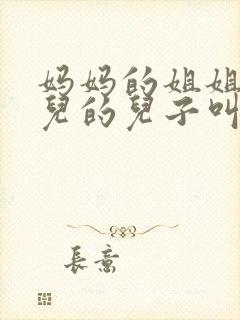 妈妈的姐姐
兒的兒子叫
長意